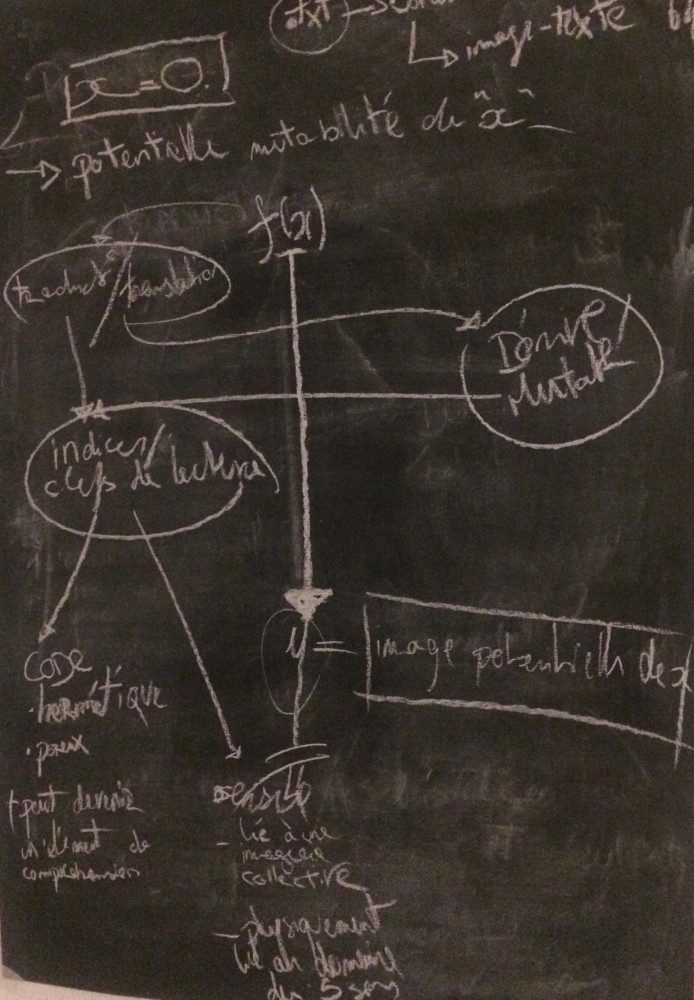 .txt →
↳ image-texte
x = 0.
→ potentielle mutabilité de "x"
f(x)
traduct° / translation
Dérive /
Mutat°
indices /
clefs de lecture
y = image potentielle de x
CODE
• hermétique
• poreux
peut devenir
un élément de
compréhension
- lié à une
imagerie
collective
- physiquement
lié au domaine
des 5 sens